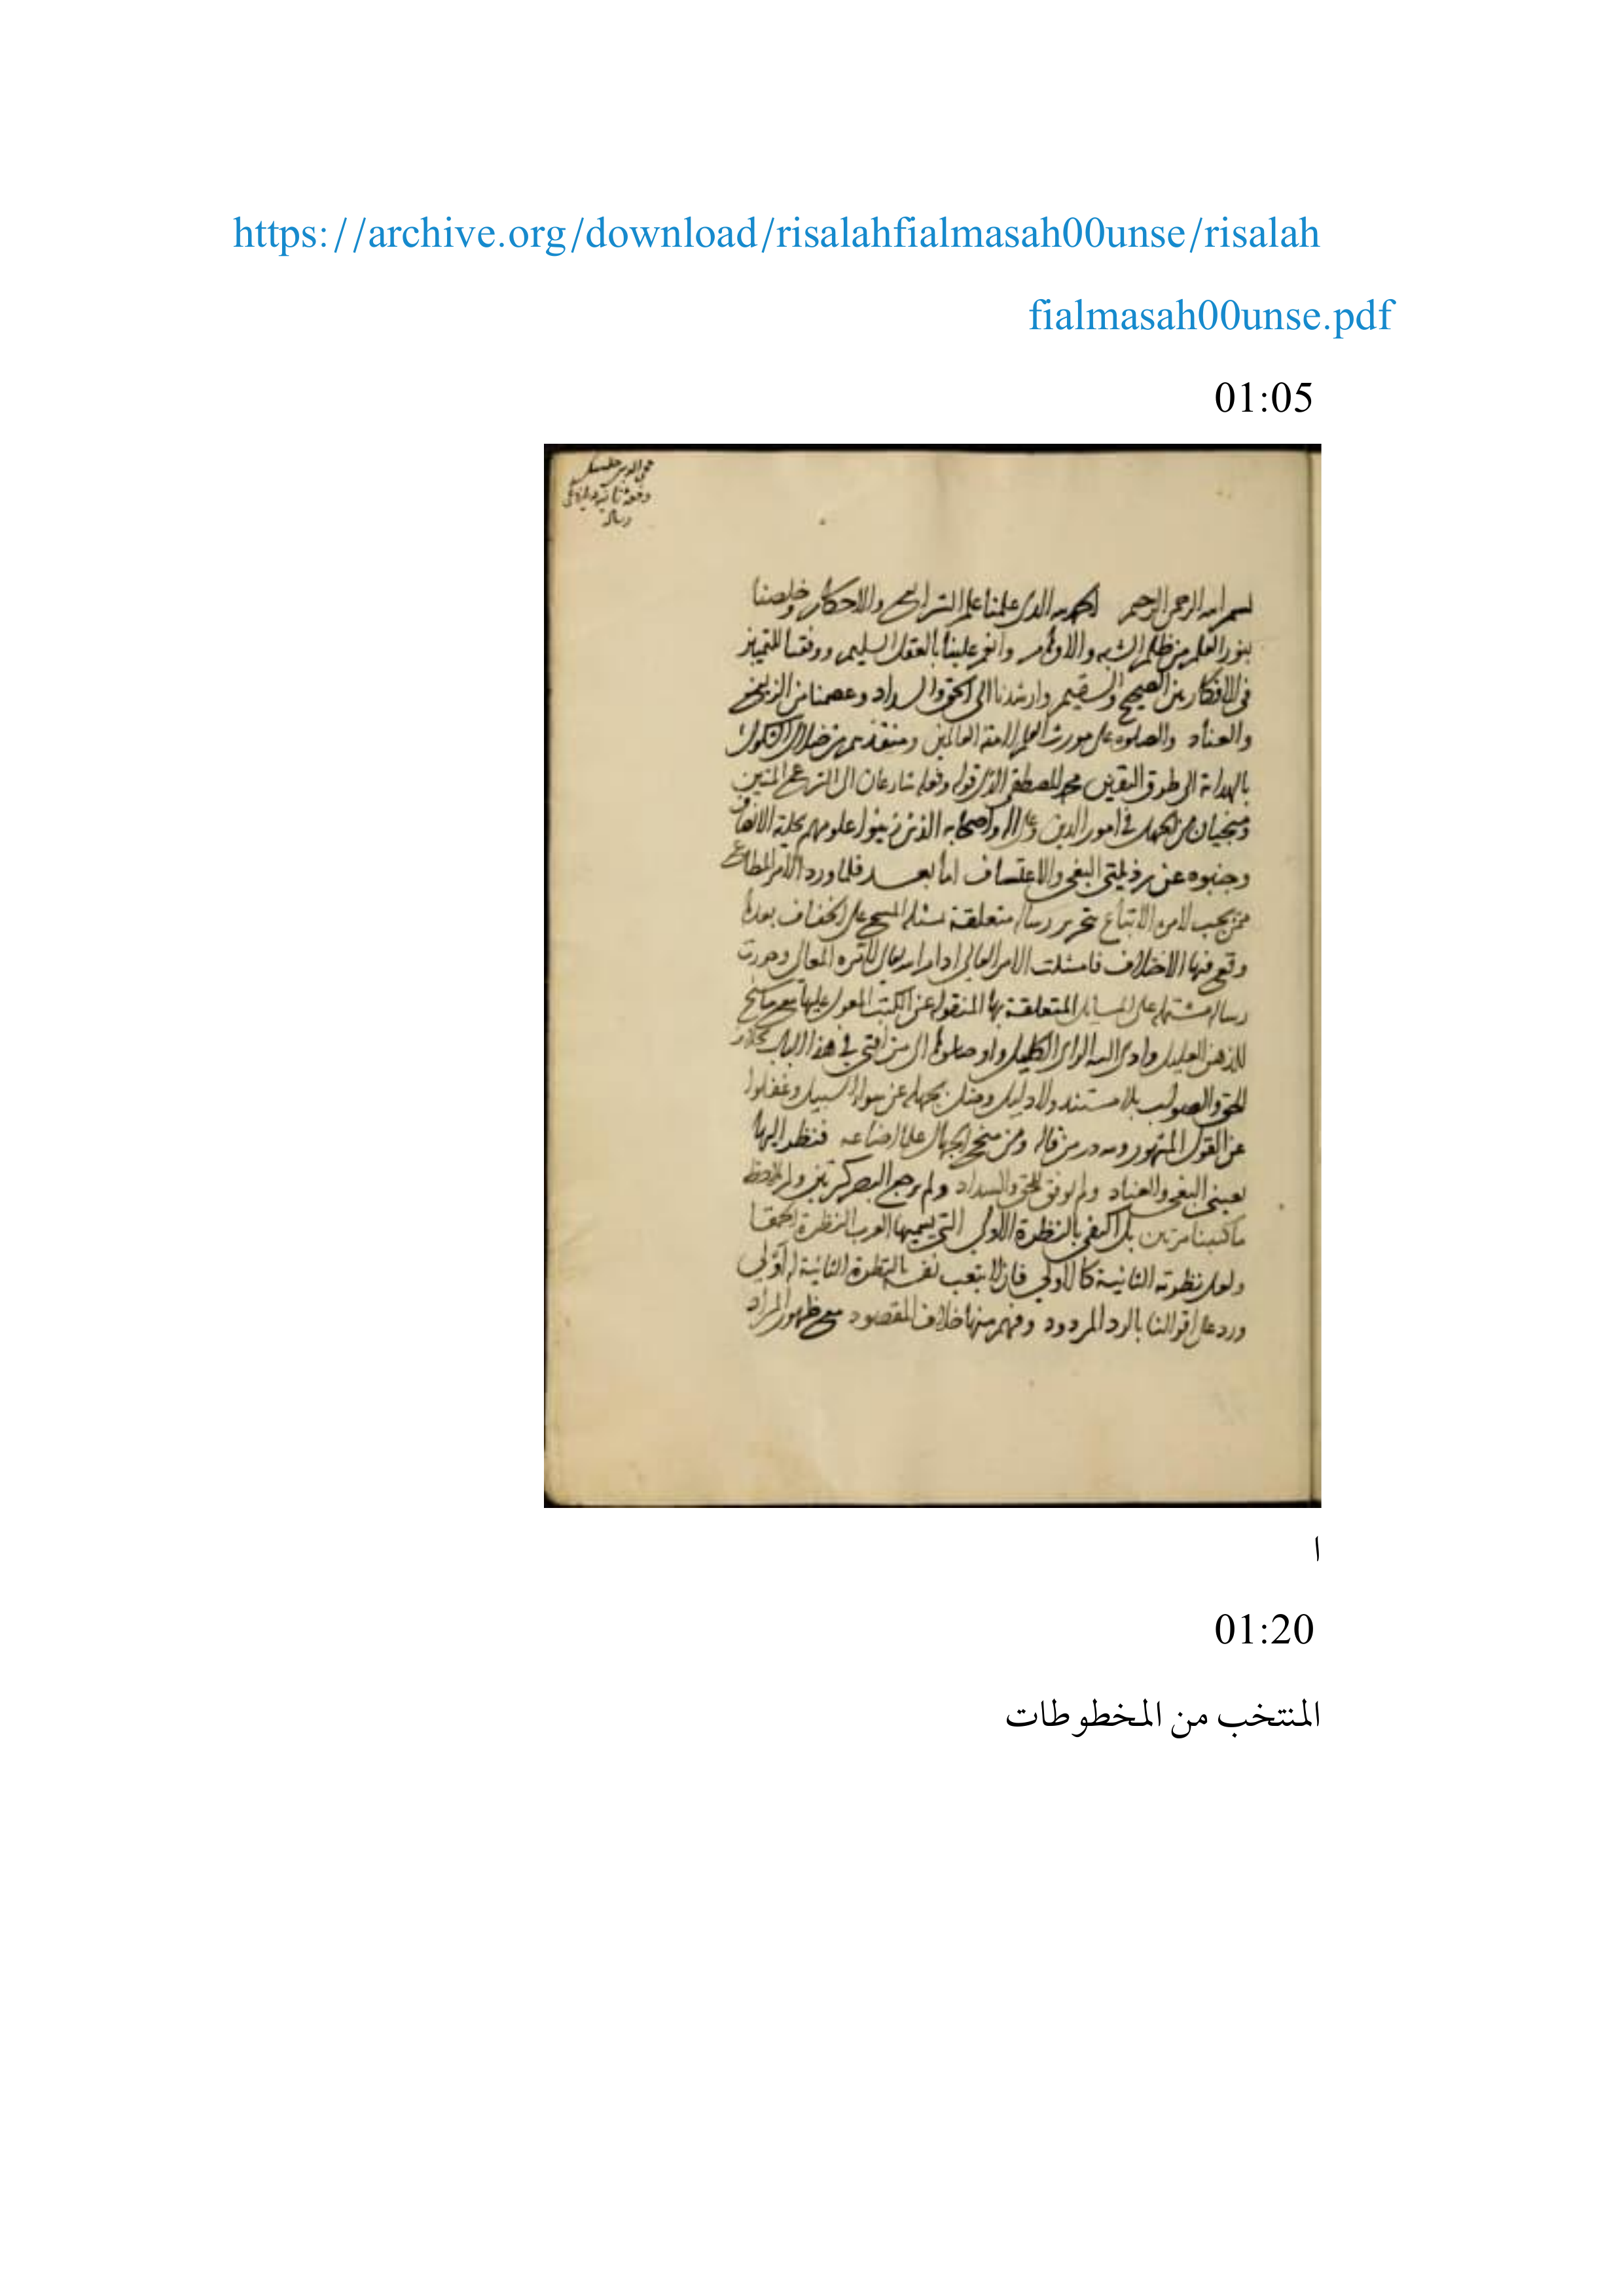 https://archive.org/download/risalahfialmasah00unse/risalah
fialmasah00unse.pdf
01:05
رسالة
بسم الله الرحمن الرحيم الحمد لله الذى علمنا علم الشرايع والاحكام وخلصنا
بنور العلم من ظلم الشبه والاوهام وانعم علينا بالعقل السليم ووفقنا للتميز
فى الافكار بين الصحيح والسقيم وارشدنا الى الحق والسداد وعصمنا من الزيغ
والعناد والصلوة على مورث العلم العالمين ومنقذهم من ضلال الشكوك
بالهداية الى طرق اليقين محمد المصطفى الذى قوله وفعله شارعان الى الشرع المتين
ومنجيان من الجهل فى امور الدين وعلى اله واصحابه الذين زينوا علومهم بحلية الانصاف
وجنبوه عن رذيلتى البغى والاعتساف اما بعد فلما ورد الامر المطاع
ممن يجب لامره الاتباع بتحرير رسالة متعلقة بمسئلة المسح على الخفاف بعدما
وقع فيها الاختلاف فامتثلت الامر العالى وحررت
رسالة مشتملة على المسايل المتعلقة بها المنقولة عن الكتب المعول عليها مع ما سنح
للذهن العليل وادى اليه الراى الكليل واوصلوها الى من افتى فى هذا الباب بخلاف
الحق والصواب بلا مستند ولا دليل وضل بجهله عن سواء السبيل وغفلوا
عن القول المشهور ولله در من قاله ومن منح الجهال علما اضاعه فنظر اليها
بعينى البغى والعناد ولم يوفق للحق والسداد ولم يرجع البصر كرتين ولم يلاحظ
ما كتبنا مرتين بل اكتفى بالنظرة الاولى التى يسميها العرب النظرة الحمقا
ولعل نظرته الثانية كالاولى فان لا يتعب نفسه بالنظرة الثانية له اولى
ورد على اقوالنا بالرد المردود وفهم منها خلاف المقصود مع ظهور المراد
ا
01:20
المنتخب من المخطوطات